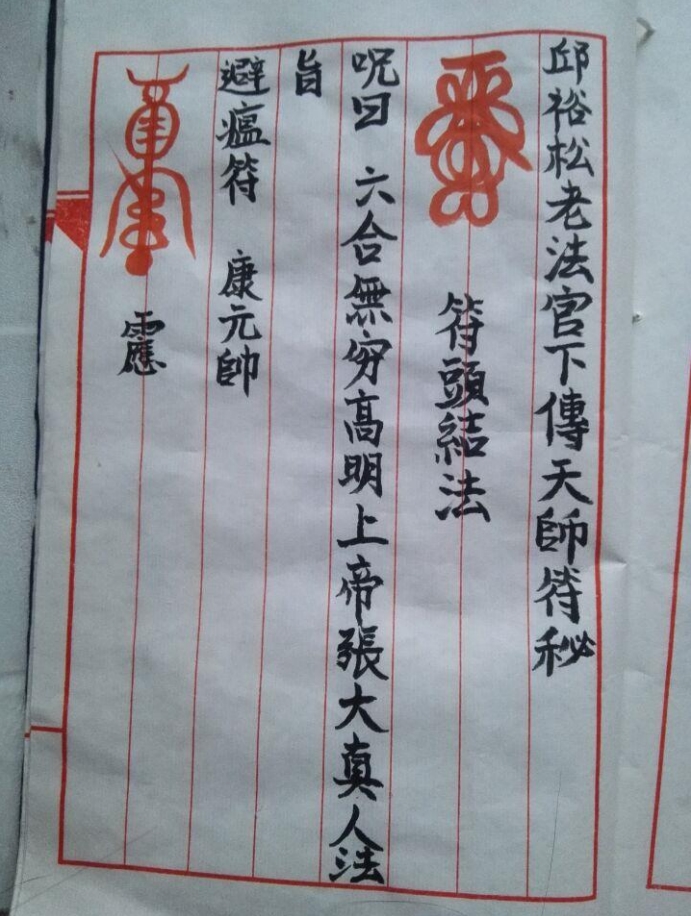 邱裕松老法官下傳天師符秘
符頭結法
呪曰 六合無穷高明上帝張大真人法
旨
避瘟符 康元帥